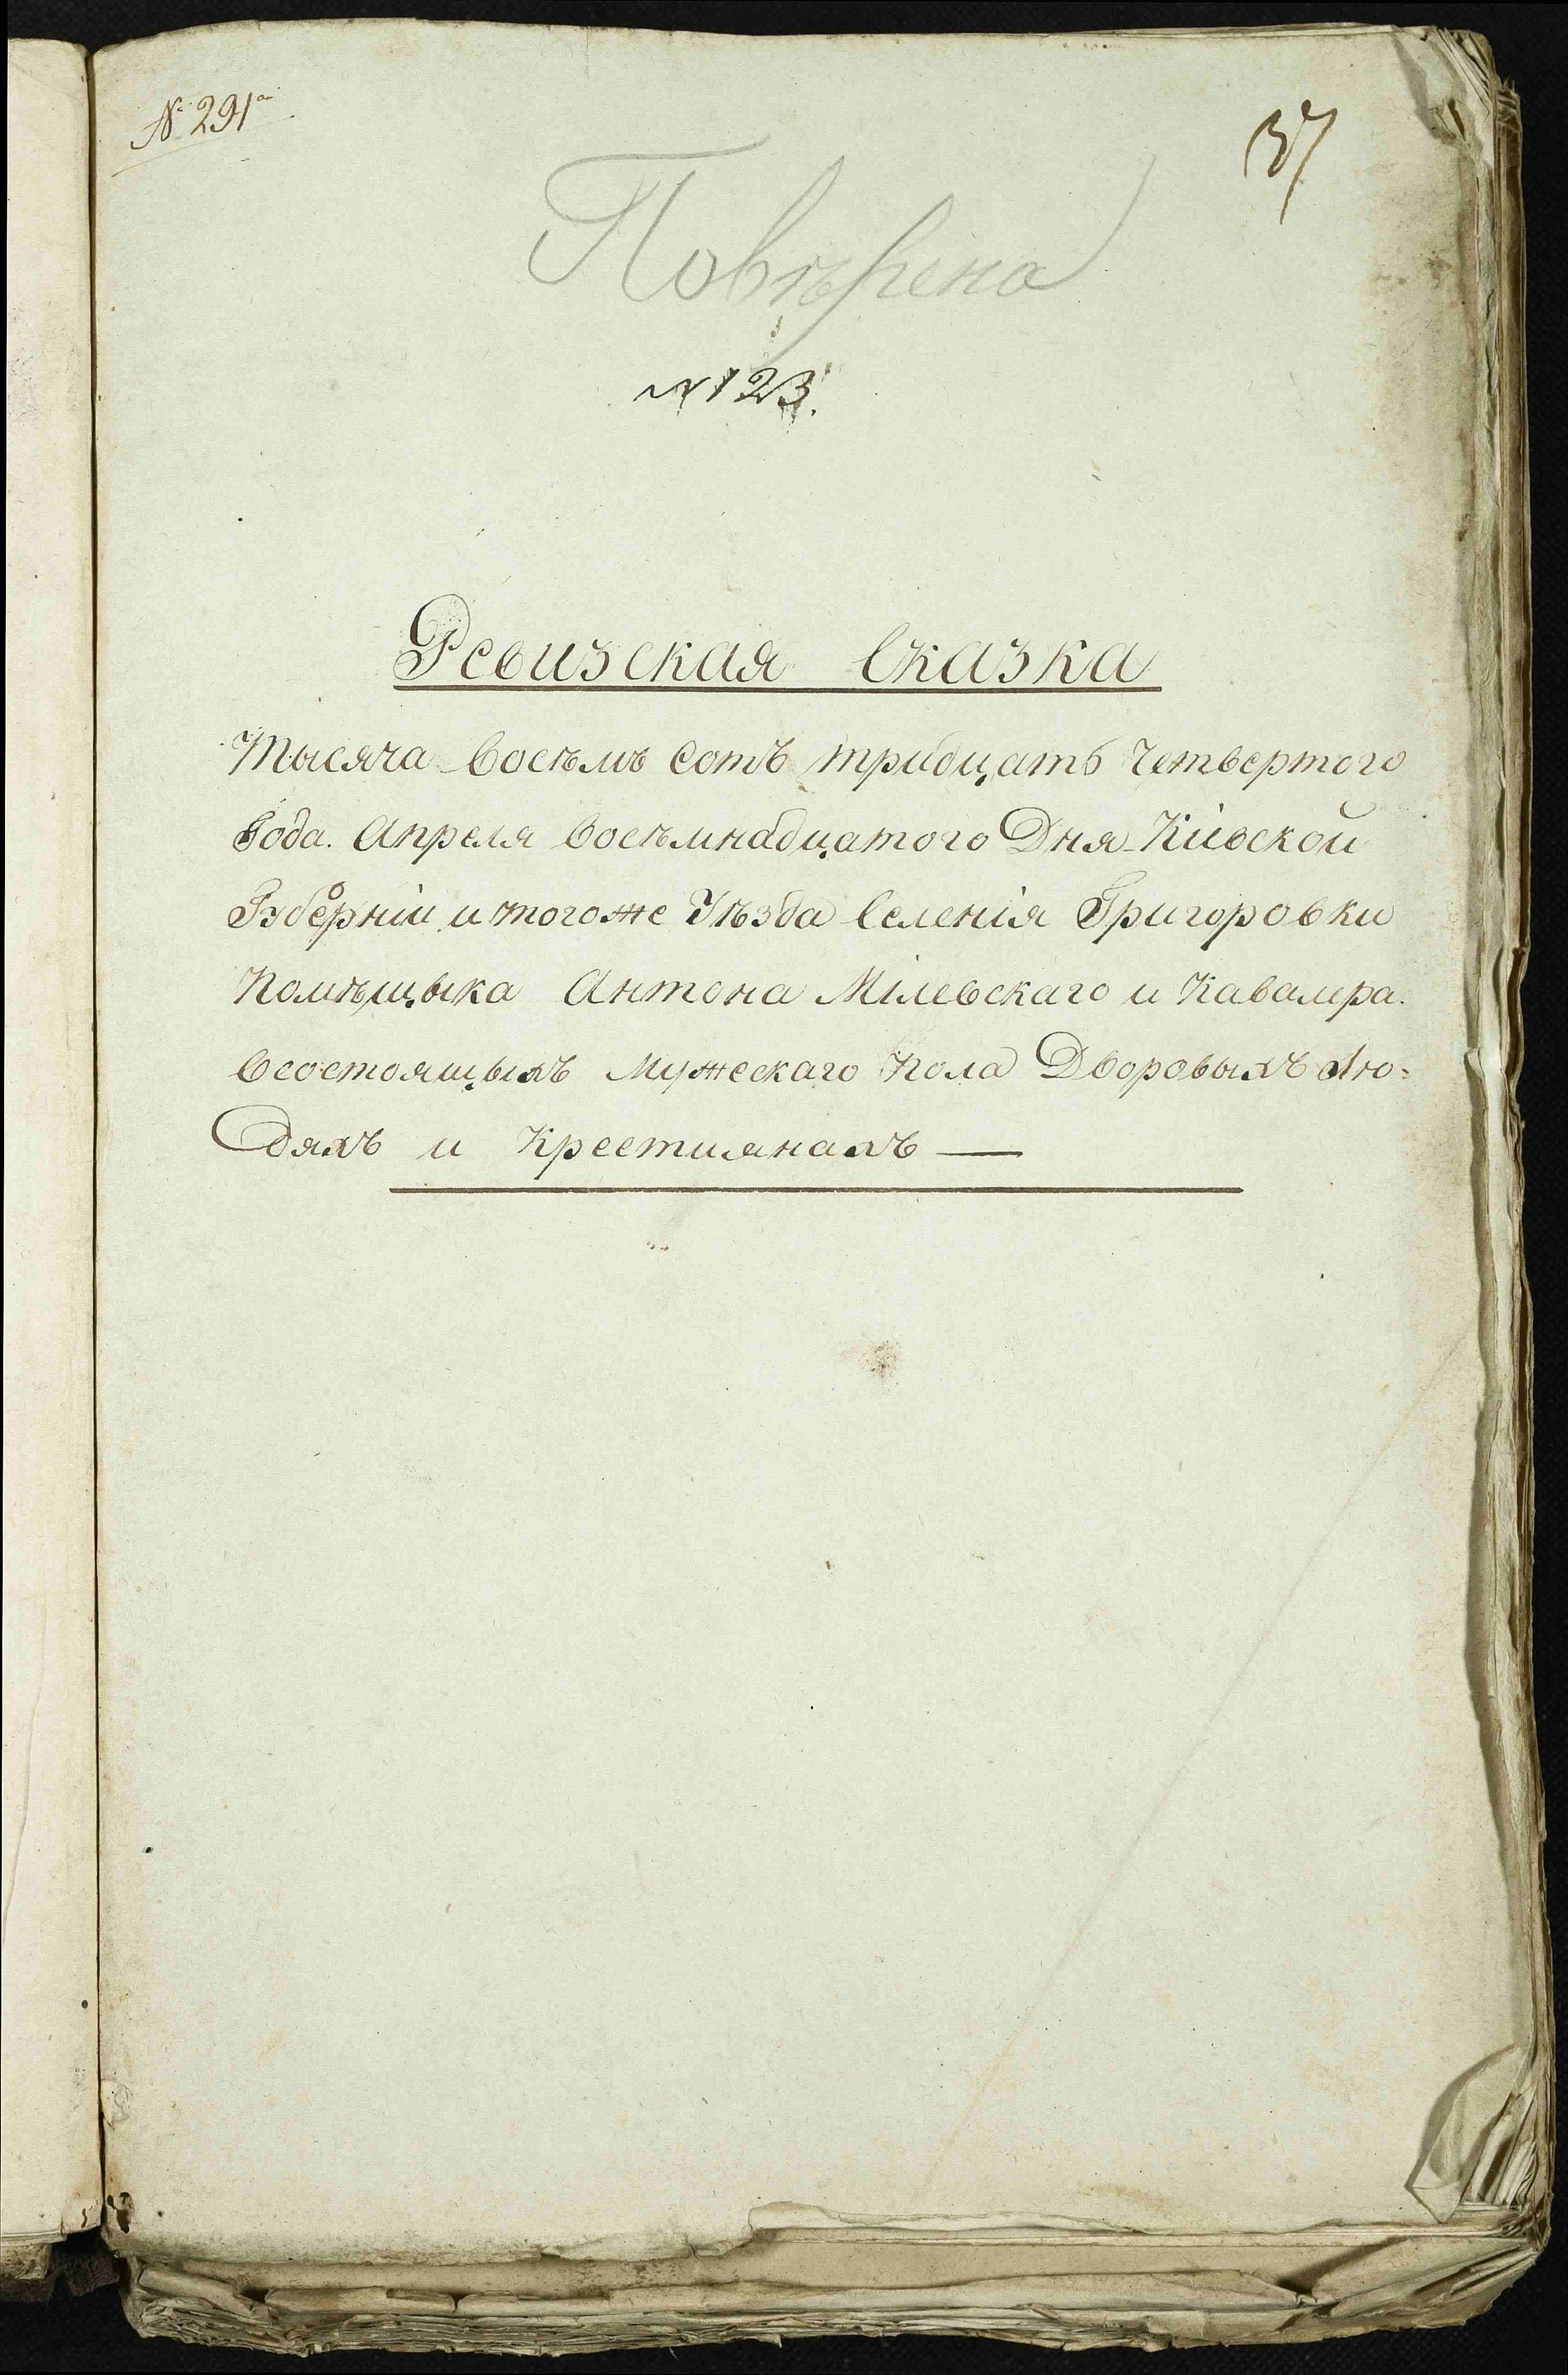 № 291
37
Повѣрена
№ 123.
Ревизская Сказка
Тысяча Восѣмъ Сотъ тридцать Четвертого
Года. Апреля Восѣмнадцатого Дня Кіивской
Губерніи и тогоже Уѣзда Селенія Григоровки
Помѣщыка Антона Мілевскаго и Кавалера.
В состоящыхъ Мужескаго Пола Дворовыхъ Лю-
дяхъ и Крестиянахъ —